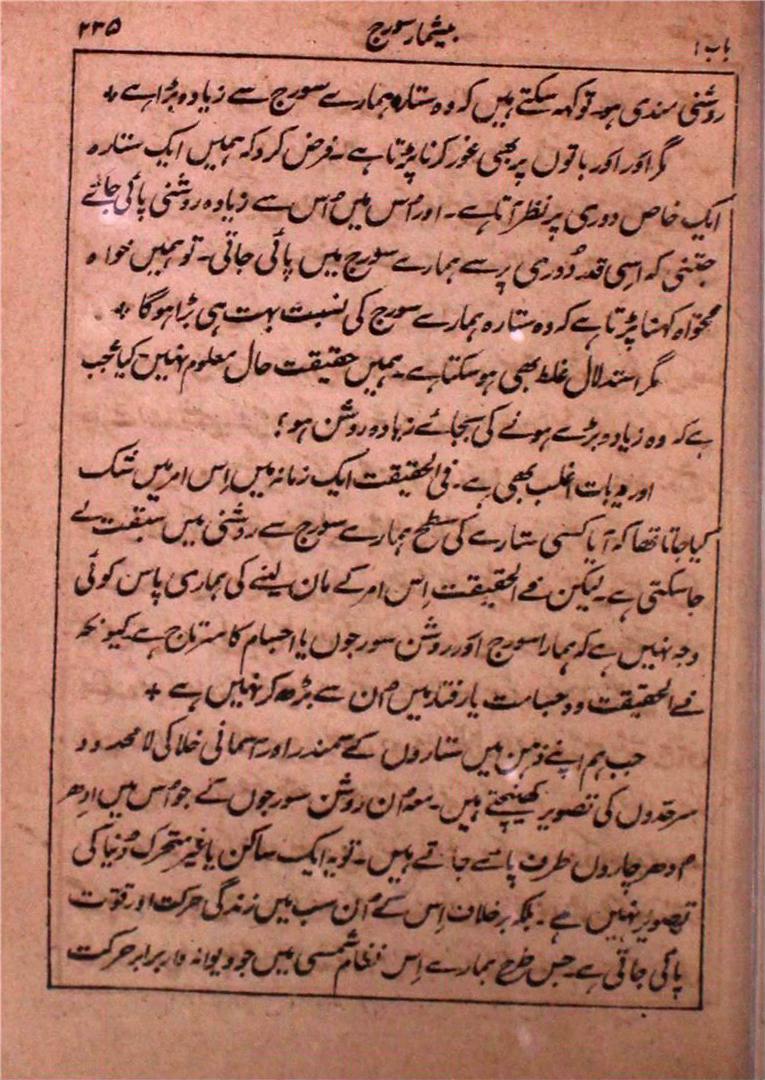 باب ۱ بیشمار سورج ۲۳۵
روشنی مندی ہو۔ تو کہہ سکتے ہیں کہ وہ ستارہ ہمارے سورج سے زیادہ بڑا ہے +
مگر اَور اَور باتوں پر بھی غور کرنا پڑتا ہے۔ فرض کرو کہ ہمیں ایک ستارہ
ایک خاص دوری پر نظر آتا ہے۔ اور اُس میں اُس سے زیادہ روشنی پائی جائے
جتنی کہ اسی قدر دُوری پر سے ہمارے سورج میں پائی جاتی۔ تو ہمیں خواہ
مخواہ کہنا پڑتا ہے کہ وہ ستارہ ہمارے سورج کی نسبت بہت ہی بڑا ہوگا +
مگر استدلال غلط بھی ہو سکتا ہے۔ ہمیں حقیقت حال معلوم نہیں۔ کیا عجب
ہے کہ وہ زیادہ بڑے ہونے کی بجائے زیادہ روشن ہو؟
اور یہ بات اغلب بھی ہے۔ فی الحقیقت ایک زمانہ میں اِس امر میں شک
کیا جاتا تھا کہ آیا کسی ستارے کی سطح ہمارے سورج سے روشنی میں سبقت لے
جا سکتی ہے۔ لیکن فے الحقیقت اِس امر کے مان لینے کی ہماری پاس کوئی
وجہ نہیں ہے کہ ہمارا سورج اَور روشن سورجوں یا اجسام کا سرتاج ہے کیونکہ
فے الحقیقت وہ جسامت یا رفتار میں اُن سے بڑھ کر نہیں ہے +
جب ہم اپنے ذہن میں ستاروں کے سمندر اور آسمانی خلا کی لا محدود
سرحدوں کی تصویر کھینچتے ہیں۔ معہ اُن روشن سورجوں کے جو اُس میں اِدھر
اُدھر چاروں طرف پائے جاتے ہیں۔ تو یہ ایک ساکن یا غیر متحرک دُنیا کی
تصویر نہیں ہے۔ بلکہ برخلاف اِس کے اُن سب میں زندگی حرکت اور قوّت
پائی جاتی ہے۔ جس طرح ہمارے اِس نظام شمسی میں جو دیوانہ وار برابر حرکت